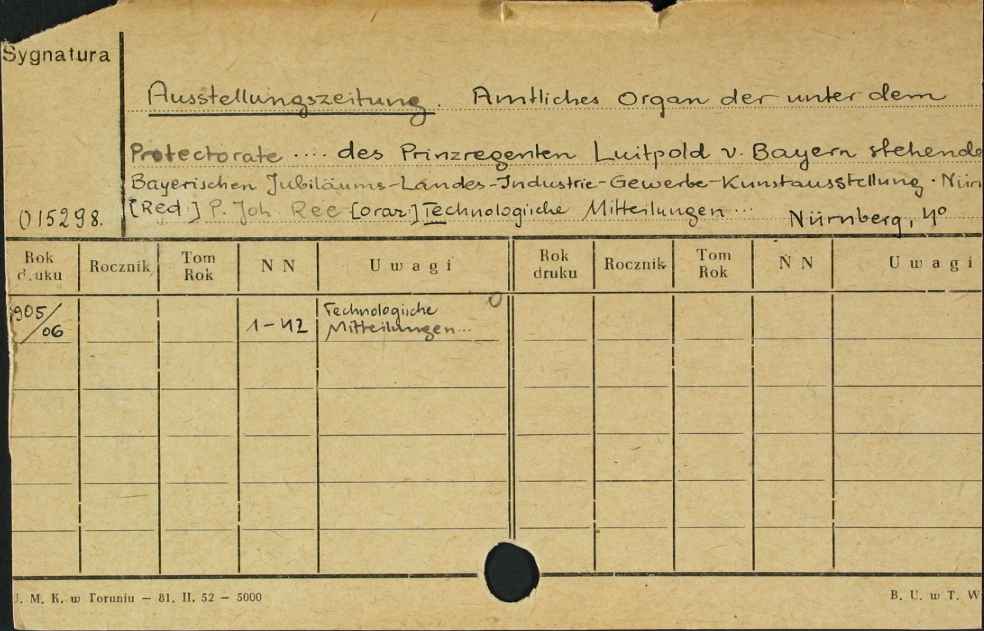 Sygnatura
Ausstellungszeitung. Amtliches Organ der unter dem
Protectorate .... des Prinzregenten Luitpold v. Bayern stehende
Bayerischen Jubiläums-Landes-Industrie-Gewerbe-Kunstausstellung. Nürn
[Red.] P. Joh. Ree [oraz] Technologische Mitteilungen ...
015298.
Nürnberg, 4°
Rok druku Rocznik Tom Rok N N Uwagi Rok druku Rocznik Tom Rok N N Uwagi
905/06 1-42 Technologische Mitteilungen...
U. M. K. w Toruniu — 81. II. 52 — 5000
B. U. w T. W